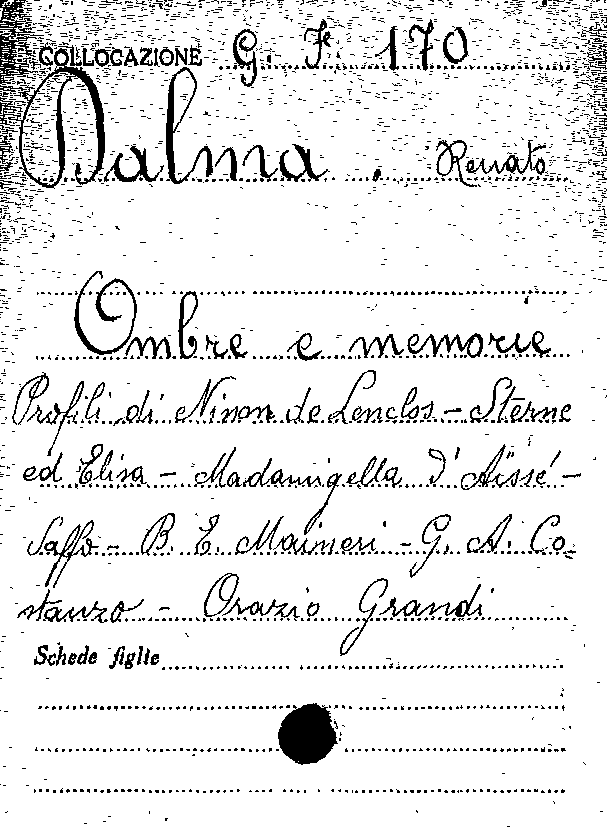 COLLOCAZIONE G. F. 170
Dalma. Renato
Ombre e memorie
Profili di Ninon de Lenclos - Sterne
ed Elisa - Madamigella d'Aïssé -
Saffo - B. E. Maineri - G. A. Co-
stanzo - Orazio Grandi
Schede figlie